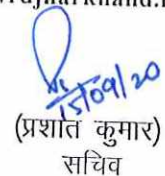 15/09/20
(प्रशांत कुमार)
सचिव